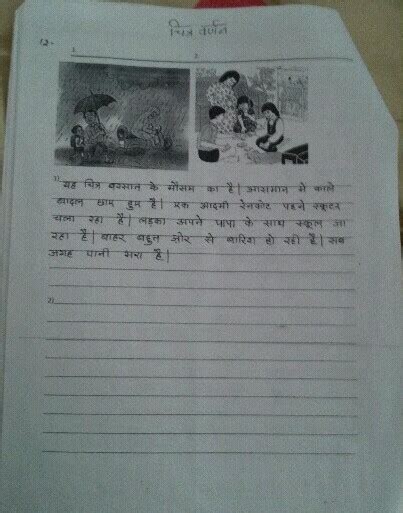 चित्र वर्णन
12.
1
2
1) यह चित्र बरसात के मौसम का है| आसमान में काले
बादल छाए हुए है| एक आदमी रेनकोट पहने स्कूटर
चला रहा है| लड़का अपने पापा के साथ स्कूल जा
रहा है| बाहर बहुत जोर से बारिश हो रही है| सब
जगह पानी भरा है|
2)